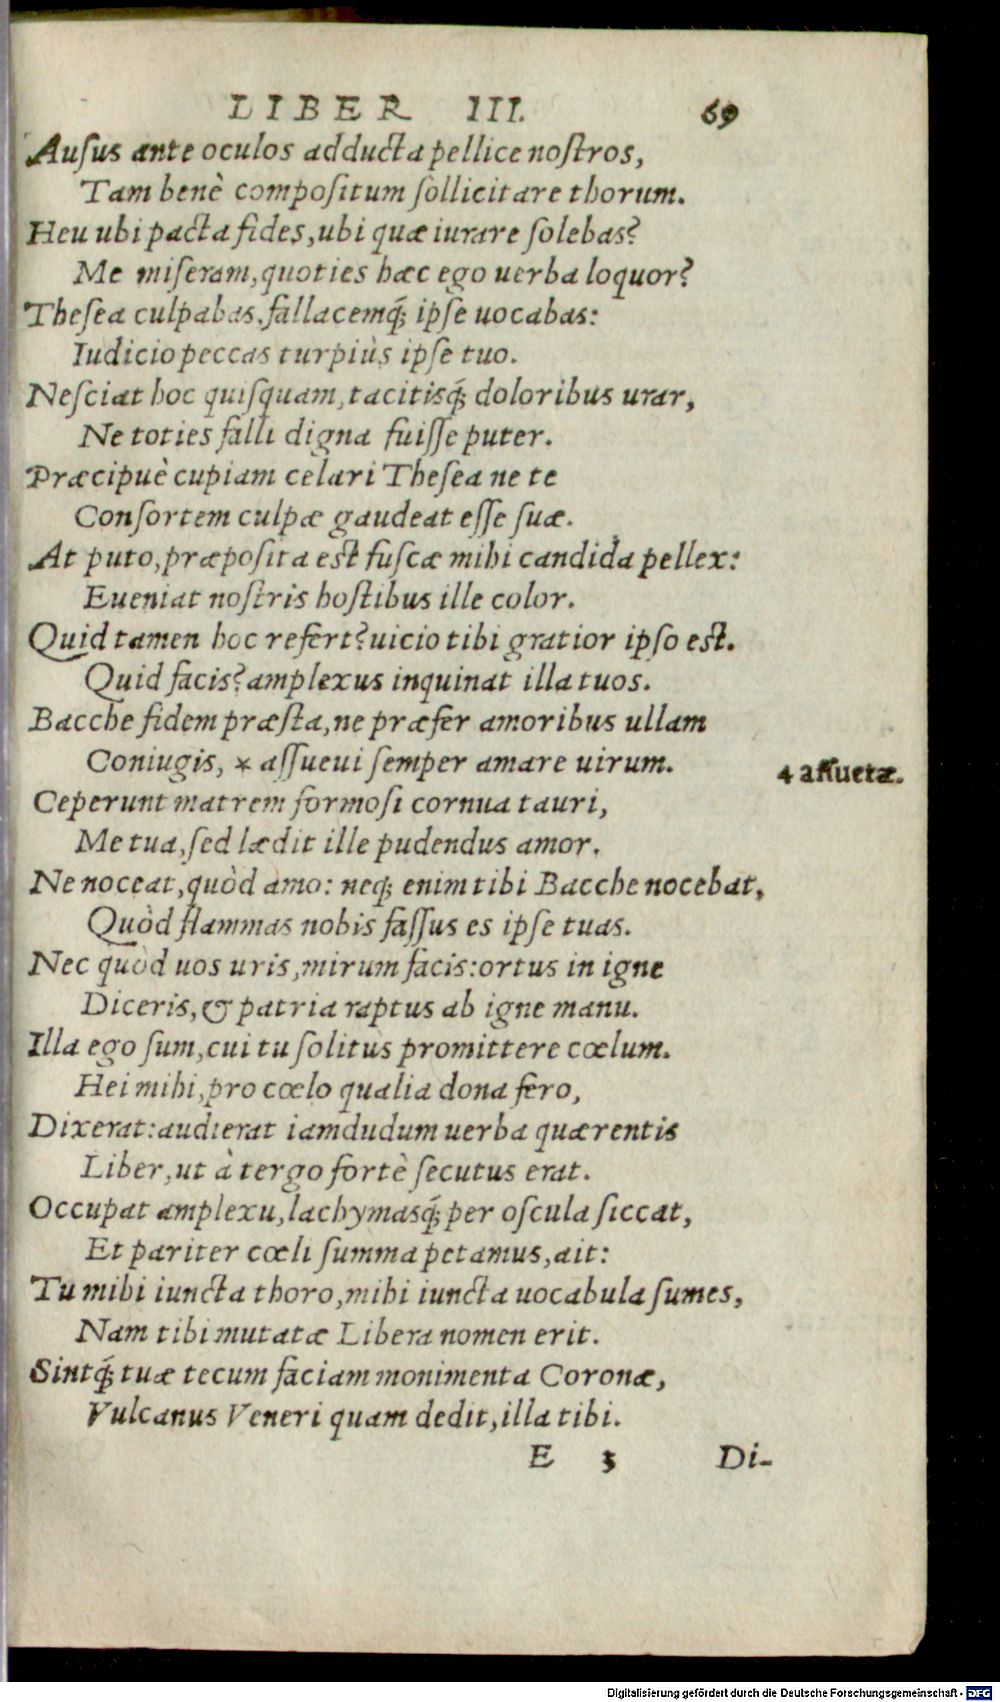 LIBER III. 69
Auſus ante oculos adducta pellice noſtros,
Tam benè compoſitum ſollicitare thorum.
Heu ubi pacta fides, ubi quæ iurare ſolebas?
Me miſeram, quoties hæc ego uerba loquor?
Theſea culpabas, fallacemq́; ipſe uocabas:
Iudicio peccas turpiùs ipſe tuo.
Neſciat hoc quiſquam, tacitisq́; doloribus urar,
Ne toties falli digna fuiſſe puter.
Præcipuè cupiam celari Theſea ne te
Conſortem culpæ gaudeat eſſe ſuæ.
At puto, præpoſita eſt fuſcæ mihi candida pellex:
Eueniat noſtris hoſtibus ille color.
Quid tamen hoc refert? uicio tibi gratior ipſo eſt.
Quid facis? amplexus inquinat illa tuos.
Bacche fidem præſta, ne præfer amoribus ullam
Coniugis, * aſſueui ſemper amare uirum.
4 aſſuetæ.
Ceperunt matrem formoſi cornua tauri,
Me tua, ſed lædit ille pudendus amor.
Ne noceat, quòd amo: neq; enim tibi Bacche nocebat,
Quòd flammas nobis faſſus es ipſe tuas.
Nec quòd uos uris, mirum facis: ortus in igne
Diceris, & patria raptus ab igne manu.
Illa ego ſum, cui tu ſolitus promittere cœlum.
Hei mihi, pro cœlo qualia dona fero,
Dixerat: audierat iamdudum uerba quærentis
Liber, ut à tergo fortè ſecutus erat.
Occupat amplexu, lachymasq́; per oſcula ſiccat,
Et pariter cœli ſumma petamus, ait:
Tu mihi iuncta thoro, mihi iuncta uocabula ſumes,
Nam tibi mutatæ Libera nomen erit.
Sintq́; tuæ tecum faciam monimenta Coronæ,
Vulcanus Veneri quam dedit, illa tibi.
E 3 Di-
Digitalisierung gefördert durch die Deutsche Forschungsgemeinschaft - DFG